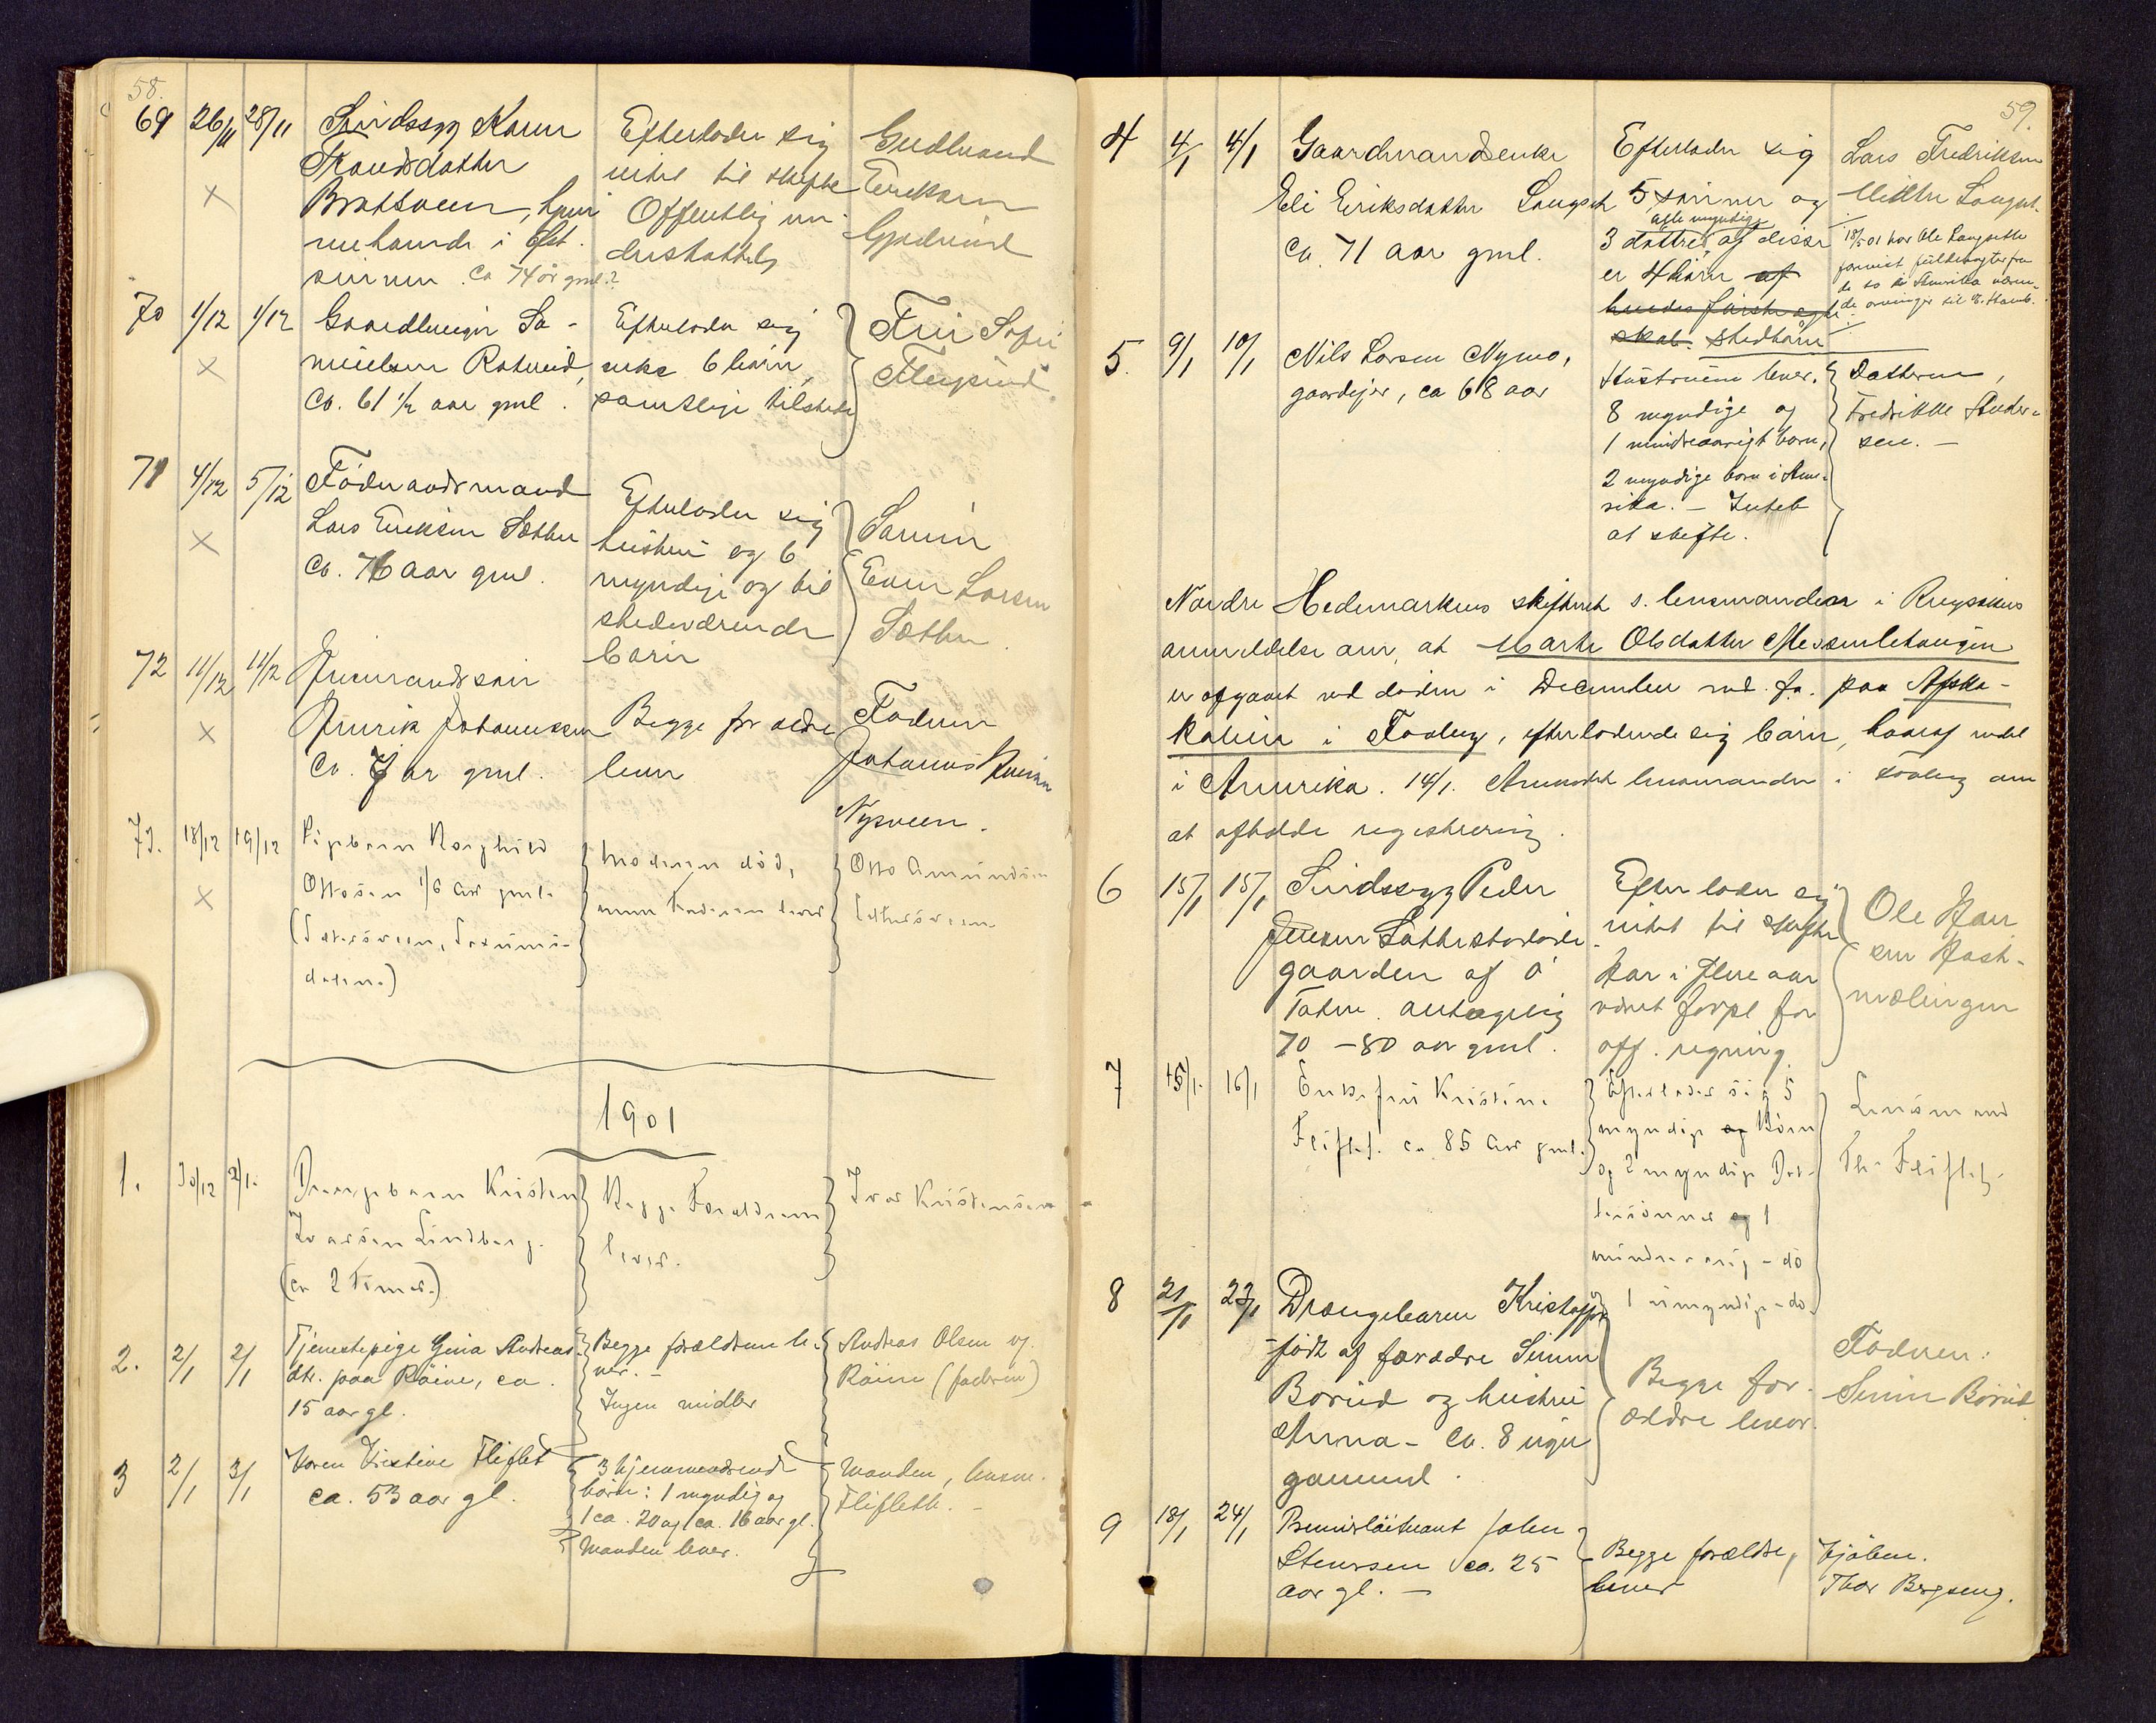 58.
69 26/11 28/11 Sindssyg Karen
Trondsdatter
Bratsveen, hjem
mehørende i Øst.
Ca 74 år gml.?
Efterlader sig
intet til skifte
Offentlig un-
derstøttet
Gudbrand
Eriksen
70 1/12 1/12 Gaardbruger Sa-
muelsen
ca. 61 1/2 aar gml.
Efterlader sig
enke 6 børn,
samtlige tilstede
Fru Sofie
71 4/12 5/12 Føderaadsmand
Lars Eriksen Sæther
ca. 76 aar gml.
Efterlader sig
hustru og 6
myndige og til
stedeværende
børn
Sønnen
Even Larsen
Sæther.
72 11/12 11/12
Henrik Johannessen
ca. 7 ar gml.
Begge forældre
lever
Faderen
Johannes
Nysveen.
73. 18/12 19/12 Pigebarn Borghild
Ottosen 1/6 aar gml.
Moderen død,
men Faderen lever
Otto Amundsen
1901
1. 30/12 2/1. Drengebarn Kristen
Ivarsen Lindberg.
(ca 2 Timer.)
Begge Forældrene
lever.
Ivar Kristensen
2. 2/1 2/1 Tjenestepige Gina Andreas-
dtr. paa Røine, ca.
15 aar gl.
Begge forældrene le-
ver. –
Ingen midler
Andreas Olsen
Røine (faderen)
3 2/1 3/1 Karen Kristine Fliflet
ca. 53 aar gl.
3 hjemmeværende
børn: 1 myndig og
1 ca. 20 og 1 ca. 16 aar gl.
Manden lever.
Manden, lensm.
Flifleth. –
59.
4 4/1 4/1 Gaardmandsenke
Eli Eriksdatter Langset
ca. 71 aar gml.
Efterlader sig
5 sønner og
alle myndige
3 døttre, af disse
er 4 børn af
hendes første egte
skab. stedbørn
Lars Fredriksen
18/5 01 har Ole Langseth
forevist fuldmagter fra
de to i Amerika væren-
de arvinger
5. 9/1 10/1 Nils Larsen Nymo,
gaardejer, ca 68 aar
Hustruen lever.
8 myndige og
1 mindreaarigt barn,
2 myndige barn i Ame-
rika. – Intet
at skifte.
Datteren,
Fredrikke Ander-
sen. –
Nordre Hedemarkens skifteret s. lensmanden i Ringsakers
anmeldelse om, at Marte Olsdatter Messenlihaugen
er afgaaet ved døden i December md. f.a. paa
i Faaberg, efterladende sig børn, hvoraf endel
i Amerika. 14/1. Anmodet lensmanden i Faaberg om
at afholde registrering.
6 15/1 15/1 Sindssyg Peder
Jensen
gaarden af Ö
antagelig
70 – 80 aar gml.
Efterlader sig
intet til skifte
har i flere aar
været forpl for
off. regning.
Ole Han
sen Hast-
mælingen
7 15/1. 16/1 Enkefru Kristine
Fliflet. ca. 85 aar gml.
Efterlader sig 5
myndige Børn
og 2 myndige Dat-
tersønner og 1
mindreaarig – do
1 umyndig – do.
Lensmand
Th. Fliflet.
8 21/1 23/1 Drangebarn Kristoffer
født af forældre Simen
Borud og hustru
Anna – ca. 8 uger
gammel.
Begge for-
ældre lever.
Faderen:
Simen Borud
9 18/1 24/1 Premierløitnant Johan
Stenersen ca. 25
aar gl. –
Begge forældre
lever
Thor Bergseng.